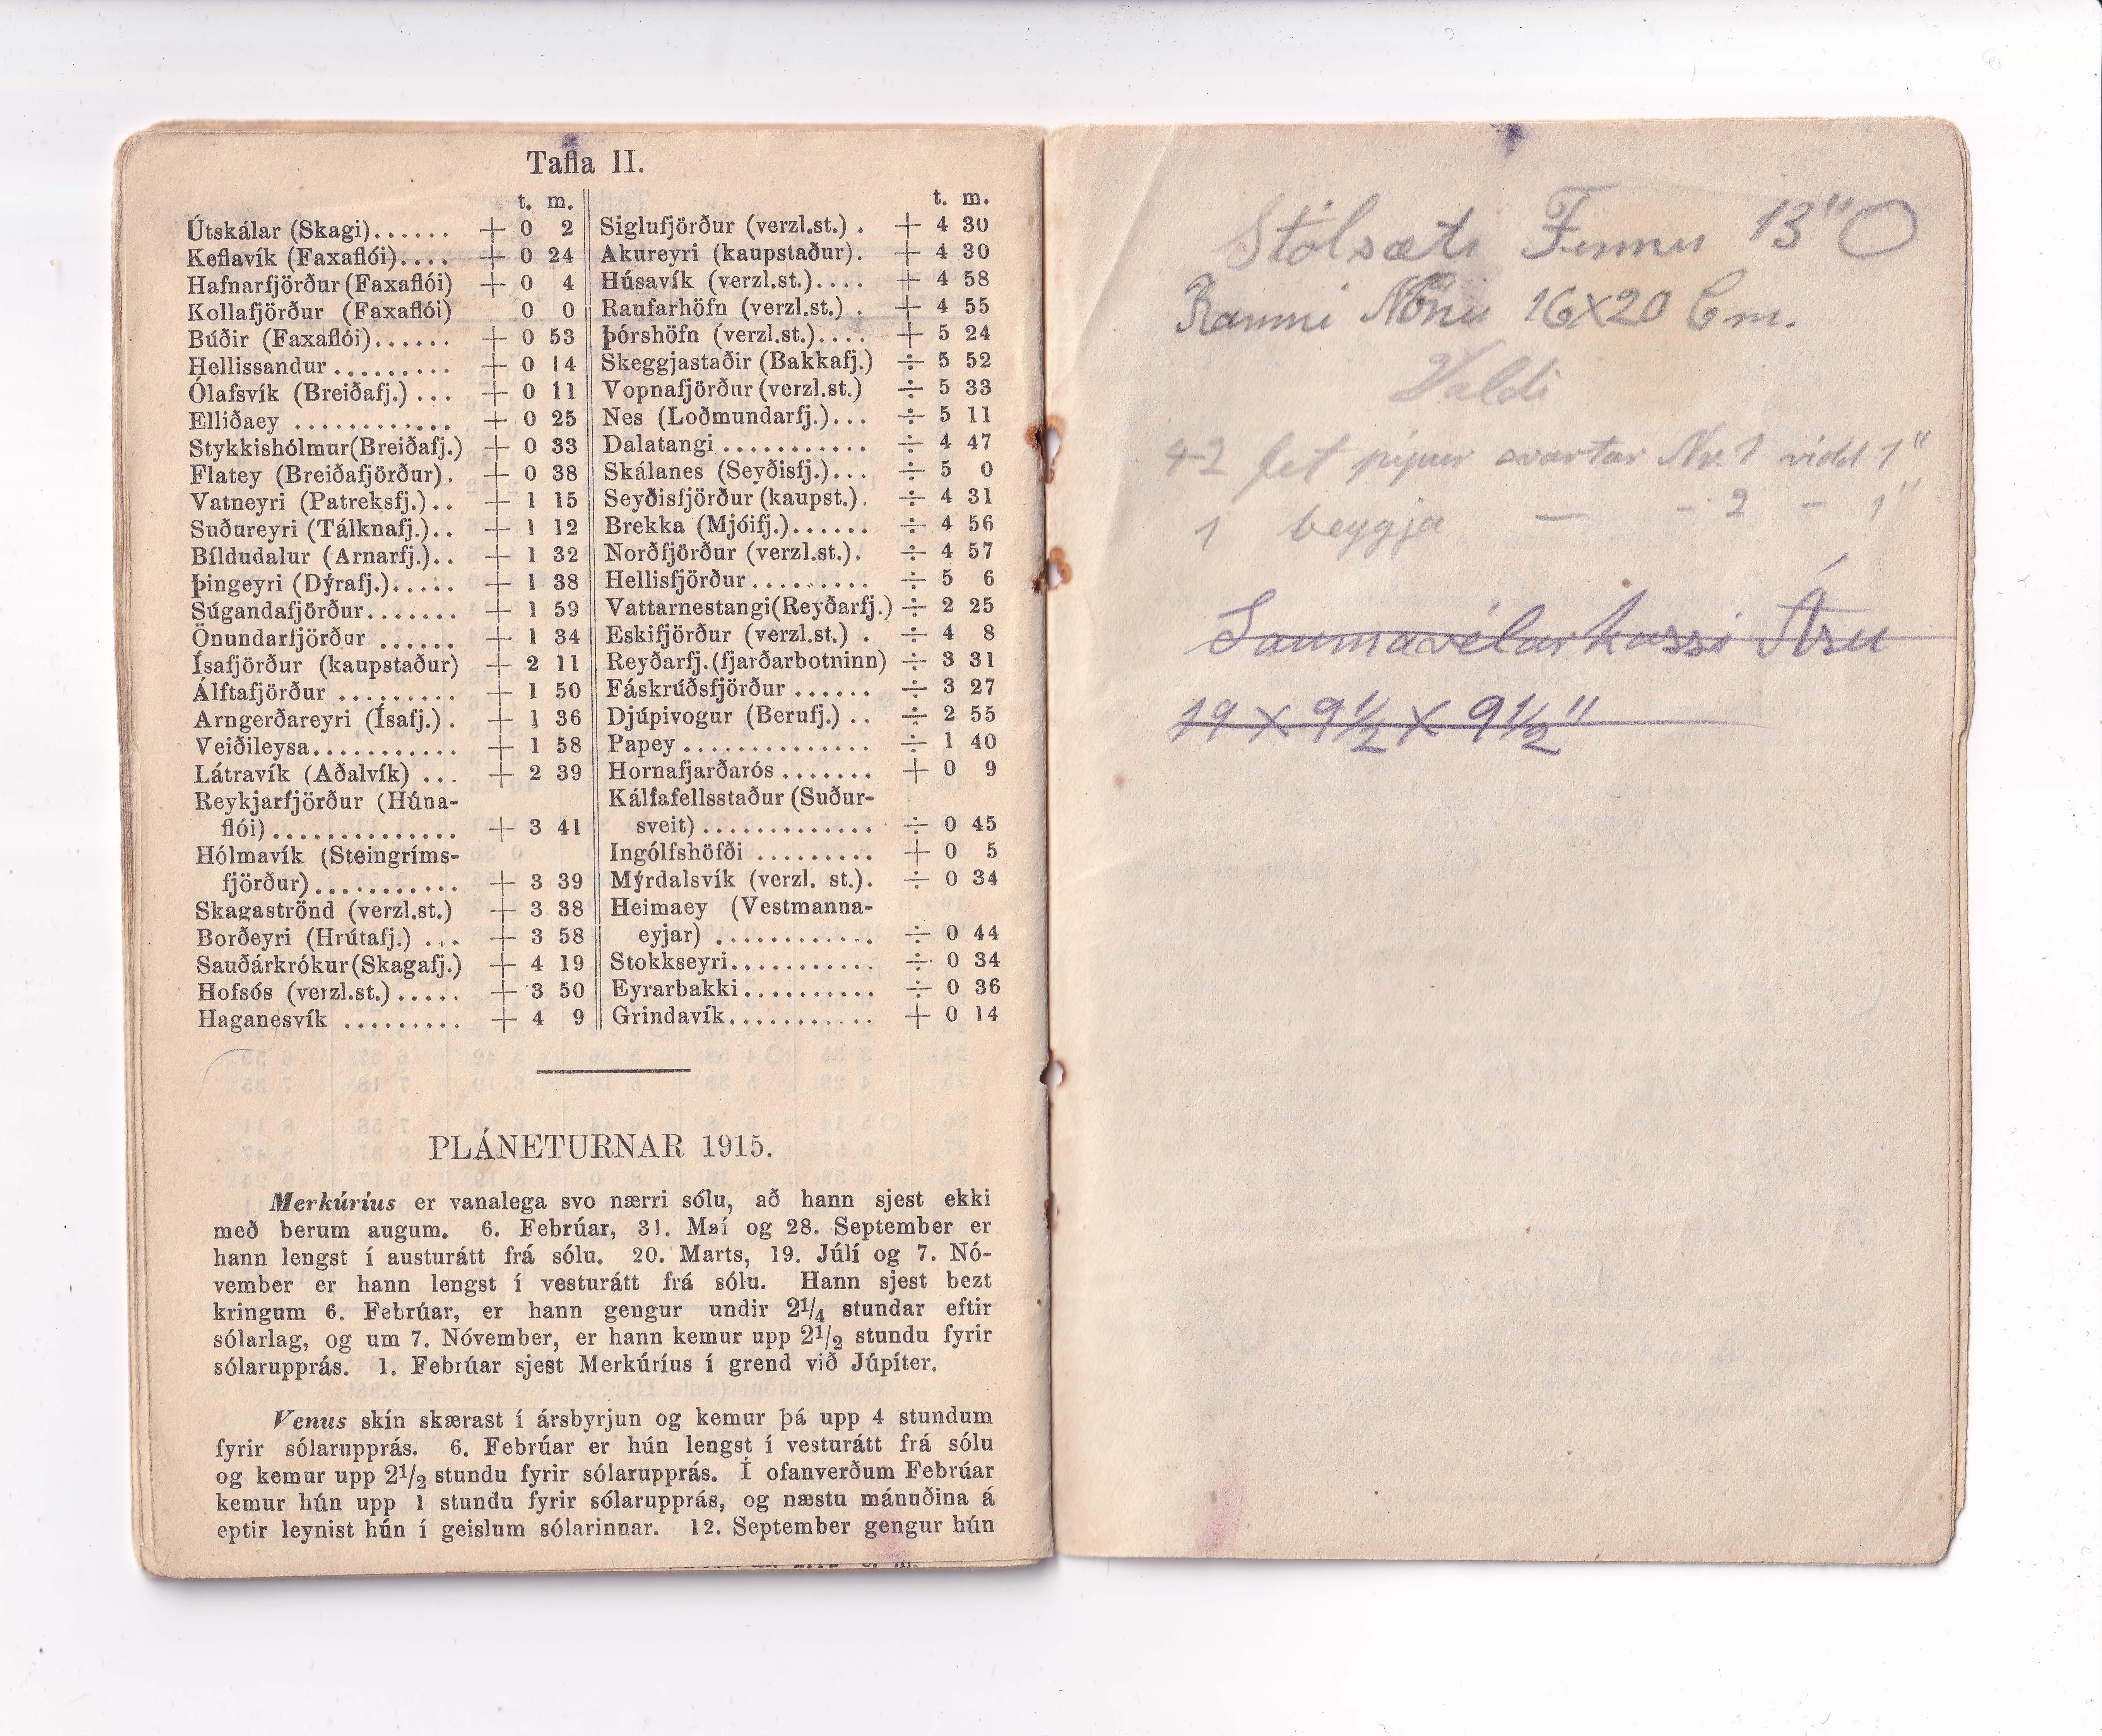 Tafla II.
t. m.
Útskálar (Skagi)...... + 0 2
Keflavík (Faxaflói).... + 0 24
Hafnarfjörður (Faxaflói) + 0 4
Kollafjörður (Faxaflói) 0 0
Búðir (Faxaflói)...... + 0 53
Hellissandur ......... + 0 14
Ólafsvík (Breiðafj.) ... + 0 11
Elliðaey ............ + 0 25
Stykkishólmur(Breiðafj.) + 0 33
Flatey (Breiðafjörður). + 0 38
Vatneyri (Patreksfj.).. + 1 15
Suðureyri (Tálknafj.).. + 1 12
Bíldudalur (Arnarfj.).. + 1 32
Þingeyri (Dýrafj.)..... + 1 38
Súgandafjörður....... + 1 59
Önundarfjörður ...... + 1 34
Ísafjörður (kaupstaður) + 2 11
Álftafjörður ......... + 1 50
Arngerðareyri (Ísafj.). + 1 36
Veiðileysa........... + 1 58
Látravík (Aðalvík) ... + 2 39
Reykjarfjörður (Húna-
flói).............. + 3 41
Hólmavík (Steingríms-
fjörður)........... + 3 39
Skagaströnd (verzl.st.) + 3 38
Borðeyri (Hrútafj.) ... + 3 58
Sauðárkrókur(Skagafj.) + 4 19
Hofsós (verzl.st.)..... + 3 50
Haganesvík ......... + 4 9
t. m.
Siglufjörður (verzl.st.) . + 4 30
Akureyri (kaupstaður). + 4 30
Húsavík (verzl.st.).... + 4 58
Raufarhöfn (verzl.st.) . + 4 55
Þórshöfn (verzl.st.).... + 5 24
Skeggjastaðir (Bakkafj.) ÷ 5 52
Vopnafjörður (verzl.st.) ÷ 5 33
Nes (Loðmundarfj.)... ÷ 5 11
Dalatangi ........... ÷ 4 47
Skálanes (Seyðisfj.)... ÷ 5 0
Seyðisfjörður (kaupst.). ÷ 4 31
Brekka (Mjóifj.)...... ÷ 4 56
Norðfjörður (verzl.st.). ÷ 4 57
Hellisfjörður......... ÷ 5 6
Vattarnestangi(Reyðarfj.) ÷ 2 25
Eskifjörður (verzl.st.) . ÷ 4 8
Reyðarfj.(fjarðarbotninn) ÷ 3 31
Fáskrúðsfjörður ...... ÷ 3 27
Djúpivogur (Berufj.) .. ÷ 2 55
Papey .............. ÷ 1 40
Hornafjarðarós ....... + 0 9
Kálfafellsstaður (Suður-
sveit)............. ÷ 0 45
Ingólfshöfði ......... + 0 5
Mýrdalsvík (verzl. st.). ÷ 0 34
Heimaey (Vestmanna-
eyjar) ............ ÷ 0 44
Stokkseyri........... ÷ 0 34
Eyrarbakki.......... ÷ 0 36
Grindavík........... + 0 14
PLÁNETURNAR 1915.
Merkúríus er vanalega svo nærri sólu, að hann sjest ekki
með berum augum. 6. Febrúar, 31. Maí og 28. September er
hann lengst í austurátt frá sólu. 20. Marts, 19. Júlí og 7. Nó-
vember er hann lengst í vesturátt frá sólu. Hann sjest bezt
kringum 6. Febrúar, er hann gengur undir 2¼ stundar eftir
sólarlag, og um 7. Nóvember, er hann kemur upp 2½ stundu fyrir
sólarupprás. 1. Febrúar sjest Merkúríus í grend við Júpíter.
Venus skín skærast í ársbyrjun og kemur þá upp 4 stundum
fyrir sólarupprás. 6. Febrúar er hún lengst í vesturátt frá sólu
og kemur upp 2½ stundu fyrir sólarupprás. Í ofanverðum Febrúar
kemur hún upp 1 stundu fyrir sólarupprás, og næstu mánuðina á
eptir leynist hún í geislum sólarinnar. 12. September gengur hún
Stólsæti 13"
Rammi Nönu 16X20 Cm.
Valdi
42 fet pípur svartar Nr. 1 vidd 1"
1 beygja — - 2 - 1"
Saumavélarkassi Ásu
19 X 9½ X 9½"